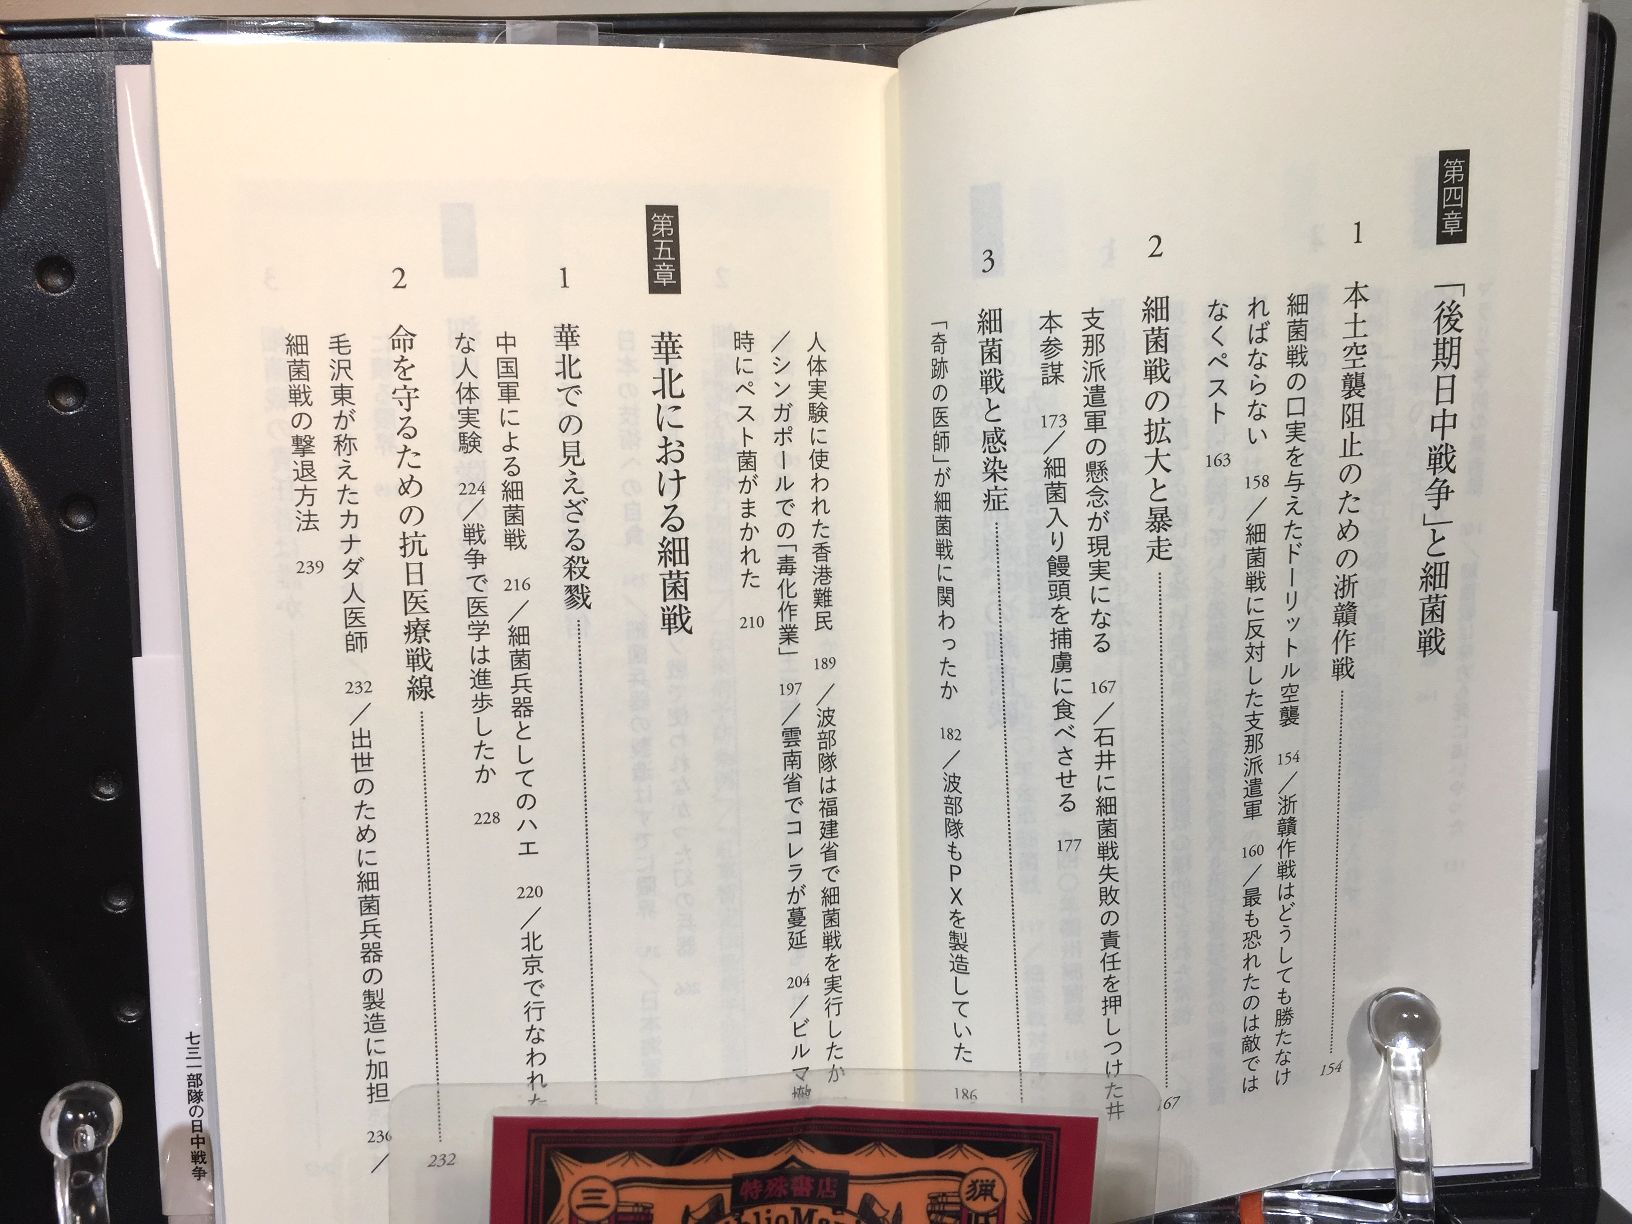 第四章 「後期日中戦争」と細菌戦
1 本土空襲阻止のための浙贛作戦 154
細菌戦の口実を与えたドーリットル空襲 154／浙贛作戦はどうしても勝たなけ
ればならない 158／細菌戦に反対した支那派遣軍 160／最も恐れたのは敵では
なくペスト 163
2 細菌戦の拡大と暴走 167
支那派遣軍の懸念が現実になる 167／石井に細菌戦失敗の責任を押しつけた井
本参謀 173／細菌入り饅頭を捕虜に食べさせる 177
3 細菌戦と感染症
「奇跡の医師」が細菌戦に関わったか 182／波部隊もPXを製造していた 186
人体実験に使われた香港難民 189／波部隊は福建省で細菌戦を実行したか
／シンガポールでの「毒化作業」 197／雲南省でコレラが蔓延 204／ビルマ撤
時にペスト菌がまかれた 210
第五章 華北における細菌戦
1 華北での見えざる殺戮
中国軍による細菌戦 216／細菌兵器としてのハエ 220／北京で行なわれた
な人体実験 224／戦争で医学は進歩したか 228
2 命を守るための抗日医療戦線 232
毛沢東が称えたカナダ人医師 232／出世のために細菌兵器の製造に加担 236／
細菌戦の撃退方法 239
七三一部隊の日中戦争
特殊書店
三
猟